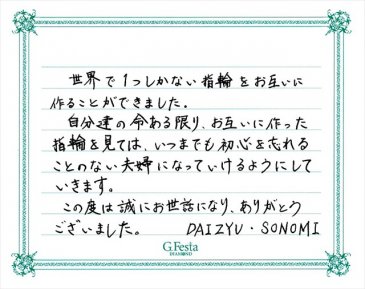 世界で1つしかない指輪をお互いに
作ることができました。
自分達の命ある限り、お互いに作った
指輪を見ては、いつまでも初心を忘れる
ことのない夫婦になっていけるようにして
いきます。
この度は誠にお世話になり、ありがとう
ございました。 DAIZYU・SONOMI
G.Festa
DIAMOND